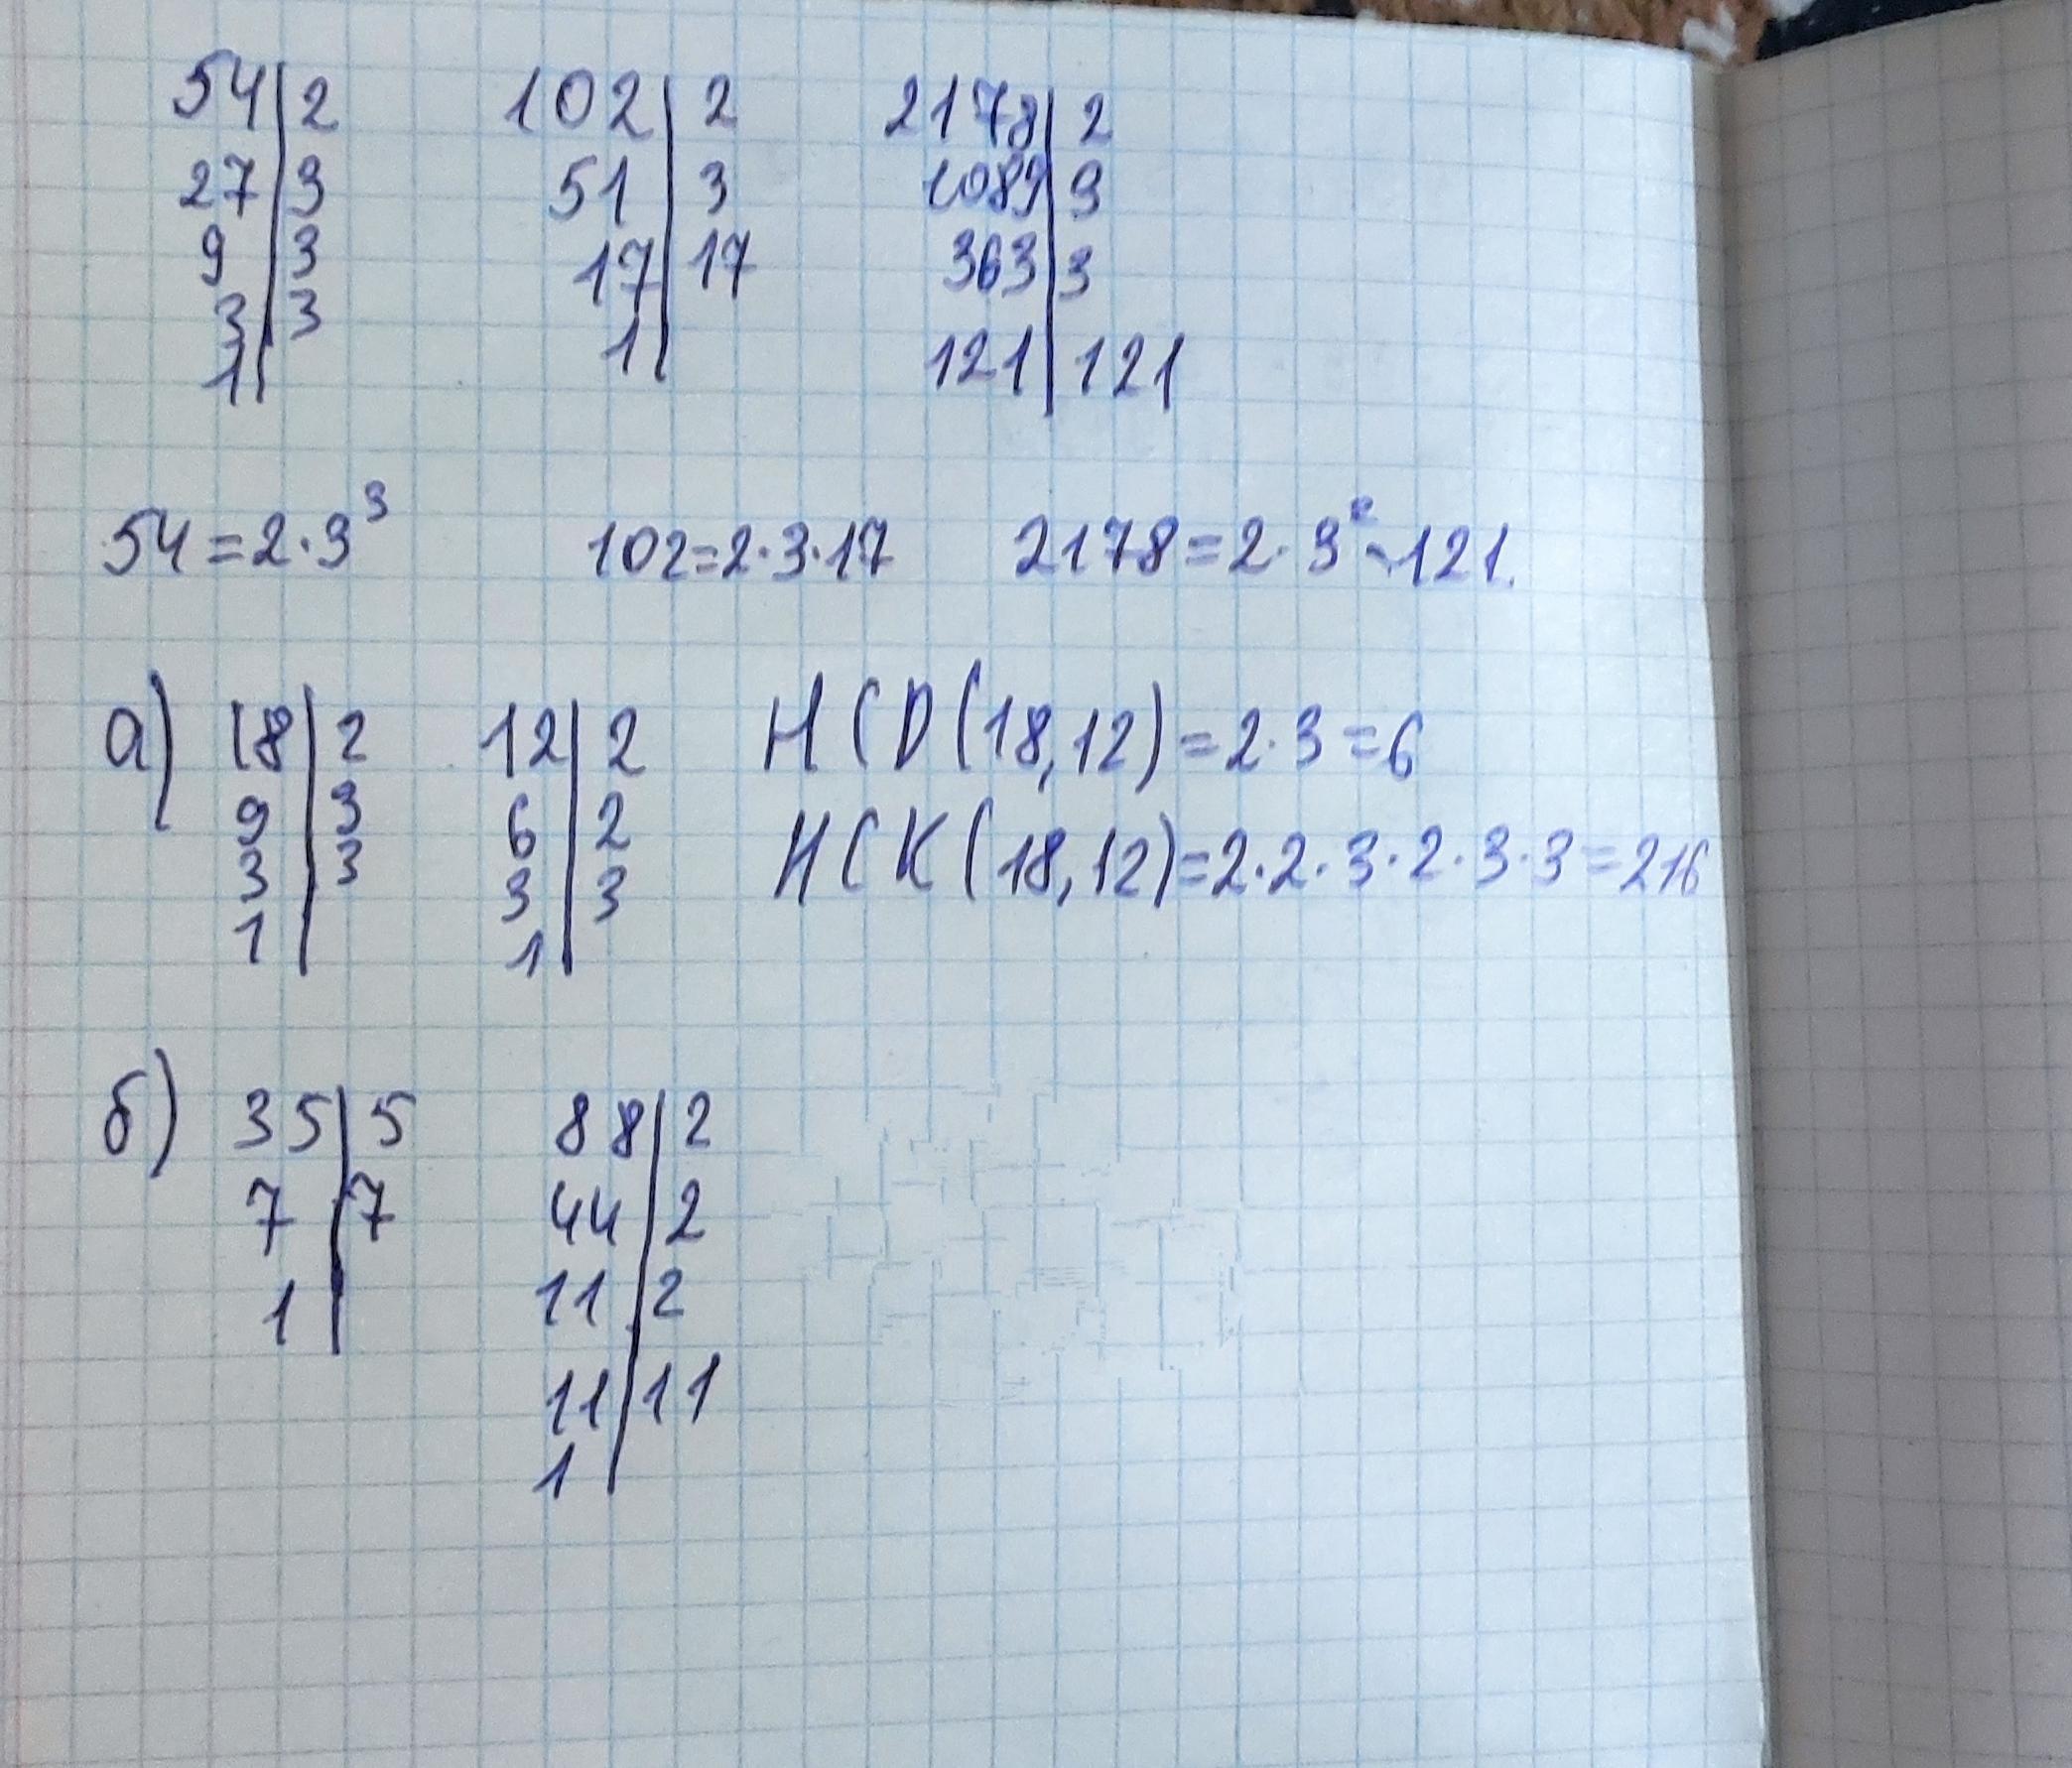 54|2 102|2 2178|2
27|3 51|3 1089|3
9|3 17|17 363|3
3|3 1| 121|121
1|
54=2·3³ 102=2·3·17 2178=2·3²·121.
а) 18|2 12|2 НСD(18,12)=2·3=6
9|3 6|2 НСК(18,12)=2·2·3·2·3·3=216
3|3 3|3
1| 1|
б) 35|5 88|2
7|7 44|2
1| 11|2
11|11
1|